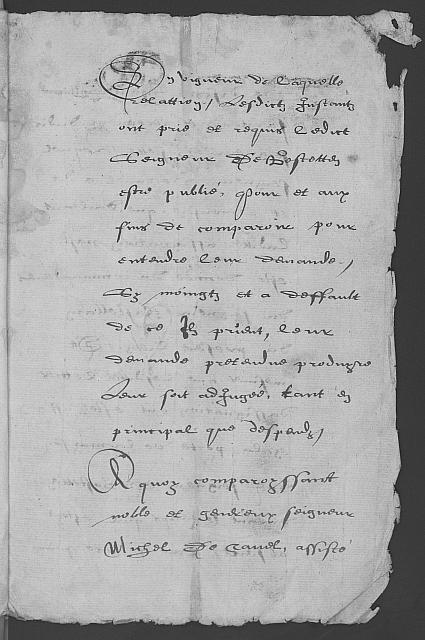 En vigueur de Laquelle
relattion, Lesdictz Instantz
ont prié et requis Ledict
Seigneur De
estre publié, Pour et aux
fins de comparoir pour
entendre leur demande,
Et moingtz et a deffault
de ce Ilz prient, Leur
demande pretendue produyre
Leur soit adjugée, tant en
principal que despendz,
A quoy comparoyssant
noble et genereux seigneur
Michel De Tavel, assisté